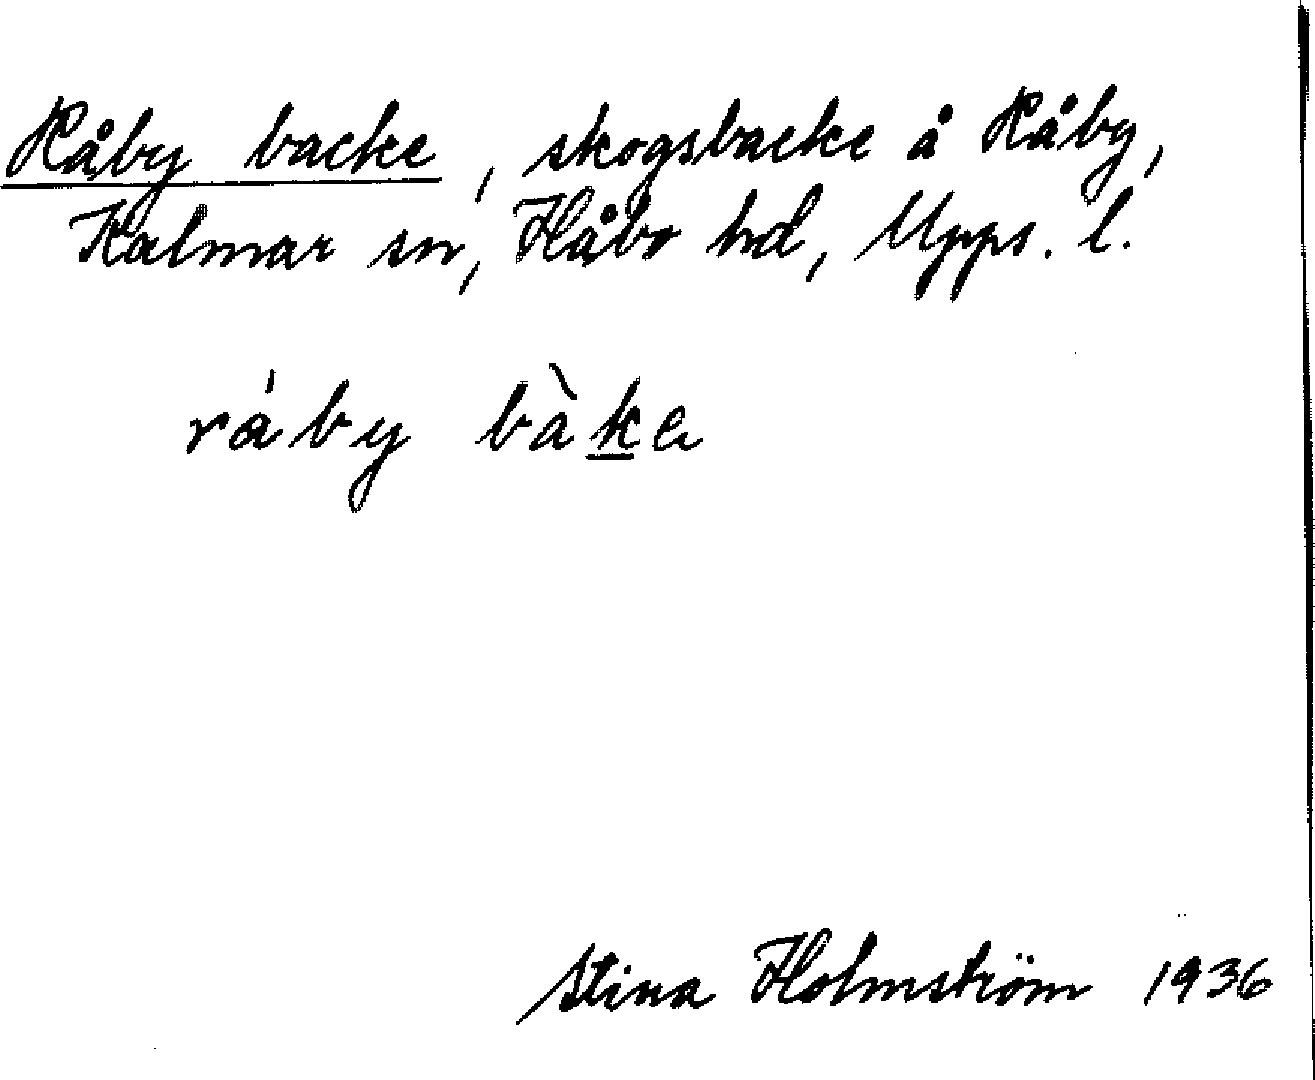 Råby backe, skogsbacke å Råby,
Kalmar sn, Håbo hd, Upps. l.
ráby bàke
Stina Holmström 1936